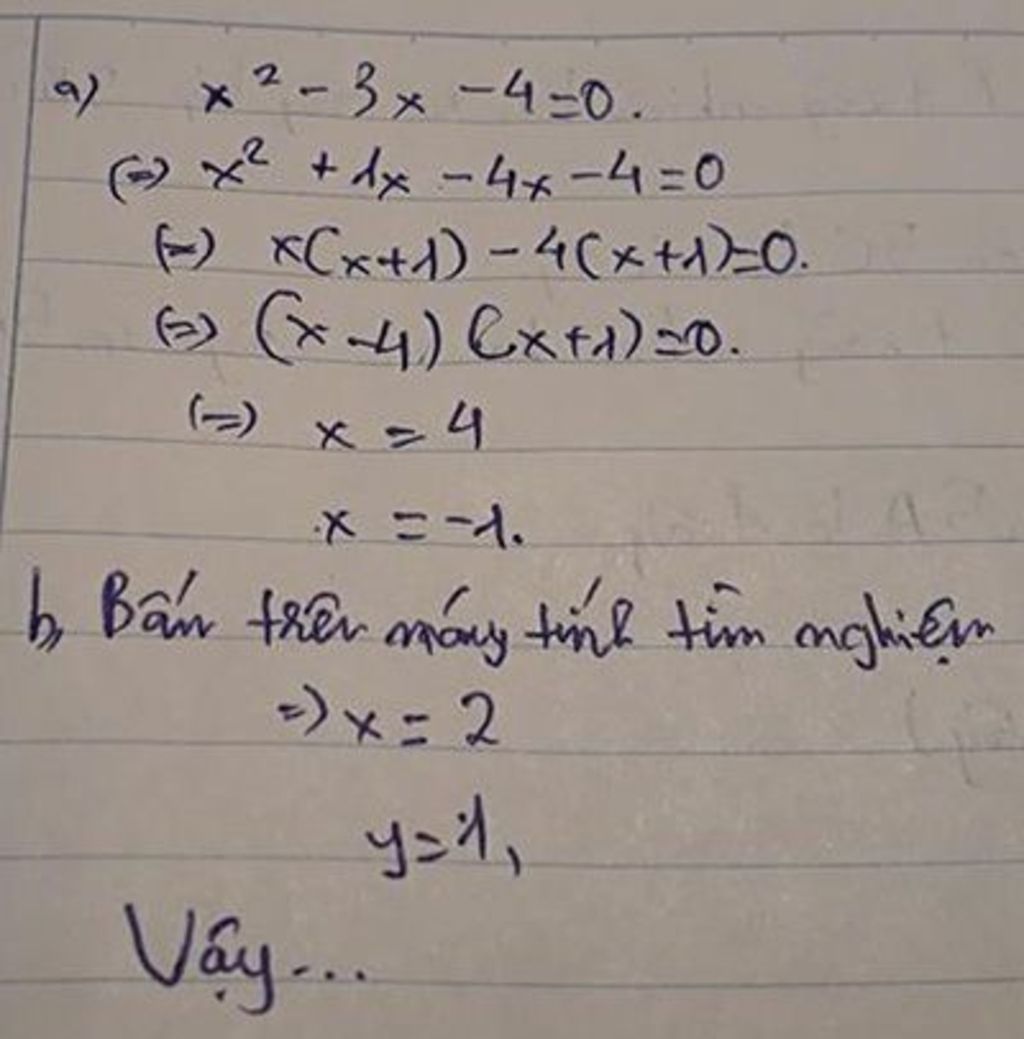 a) x² - 3x - 4 = 0.
(=) x² + 1x - 4x - 4 = 0
(=) x(x+1) - 4(x+1) = 0.
(=) (x - 4) (x+1) = 0.
(=) x = 4
x = -1.
b, Bấn trên máy tính tìm nghiệm
=) x = 2
y = 1,
Vậy...